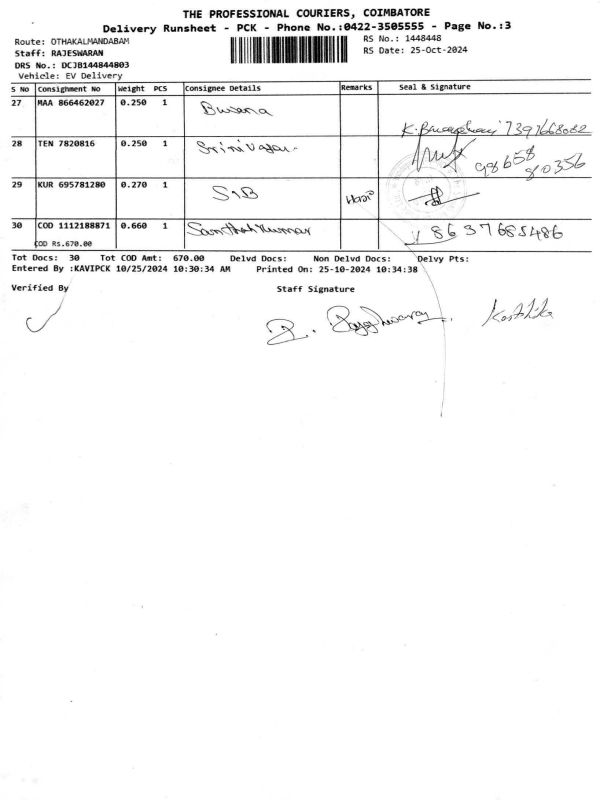 THE PROFESSIONAL COURIERS, COIMBATORE
Delivery Runsheet - PCK - Phone No.:0422-3505555 - Page No.:3
Route: OTHAKALMANDABAM
RS No.: 1448448
Staff: RAJESWARAN
RS Date: 25-Oct-2024
DRS No.: DCJB144844803
Vehicle: EV Delivery
S No Consignment No Weight PCS Consignee Details Remarks Seal & Signature
27 MAA 866462027 0.250 1 Buvana
7397668082
28 TEN 7820816 0.250 1 Srinivasan
98658
80356
29 KUR 695781280 0.270 1 SIB
30 COD 1112188871 0.660 1 Santhosh Kumar 8637685486
COD Rs.670.00
Tot Docs: 30 Tot COD Amt: 670.00 Delvd Docs: Non Delvd Docs: Delvy Pts:
Entered By :KAVIPCK 10/25/2024 10:30:34 AM Printed On: 25-10-2024 10:34:38
Verified By Staff Signature